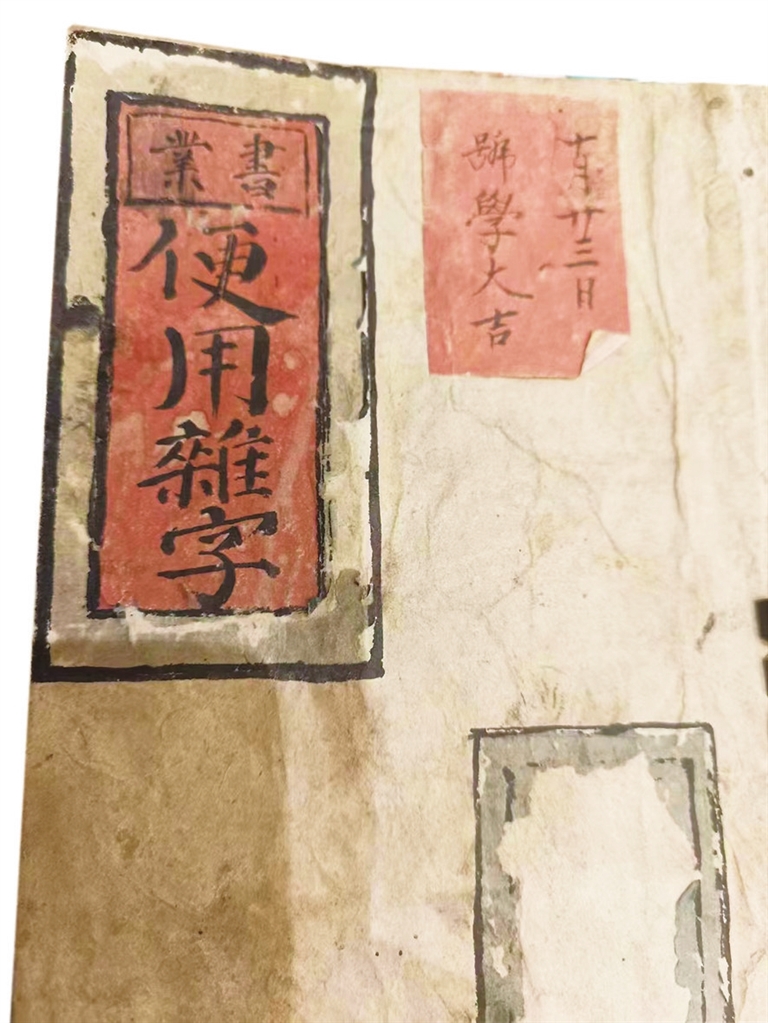 十月廿三日
學大吉
書業
便用雜字